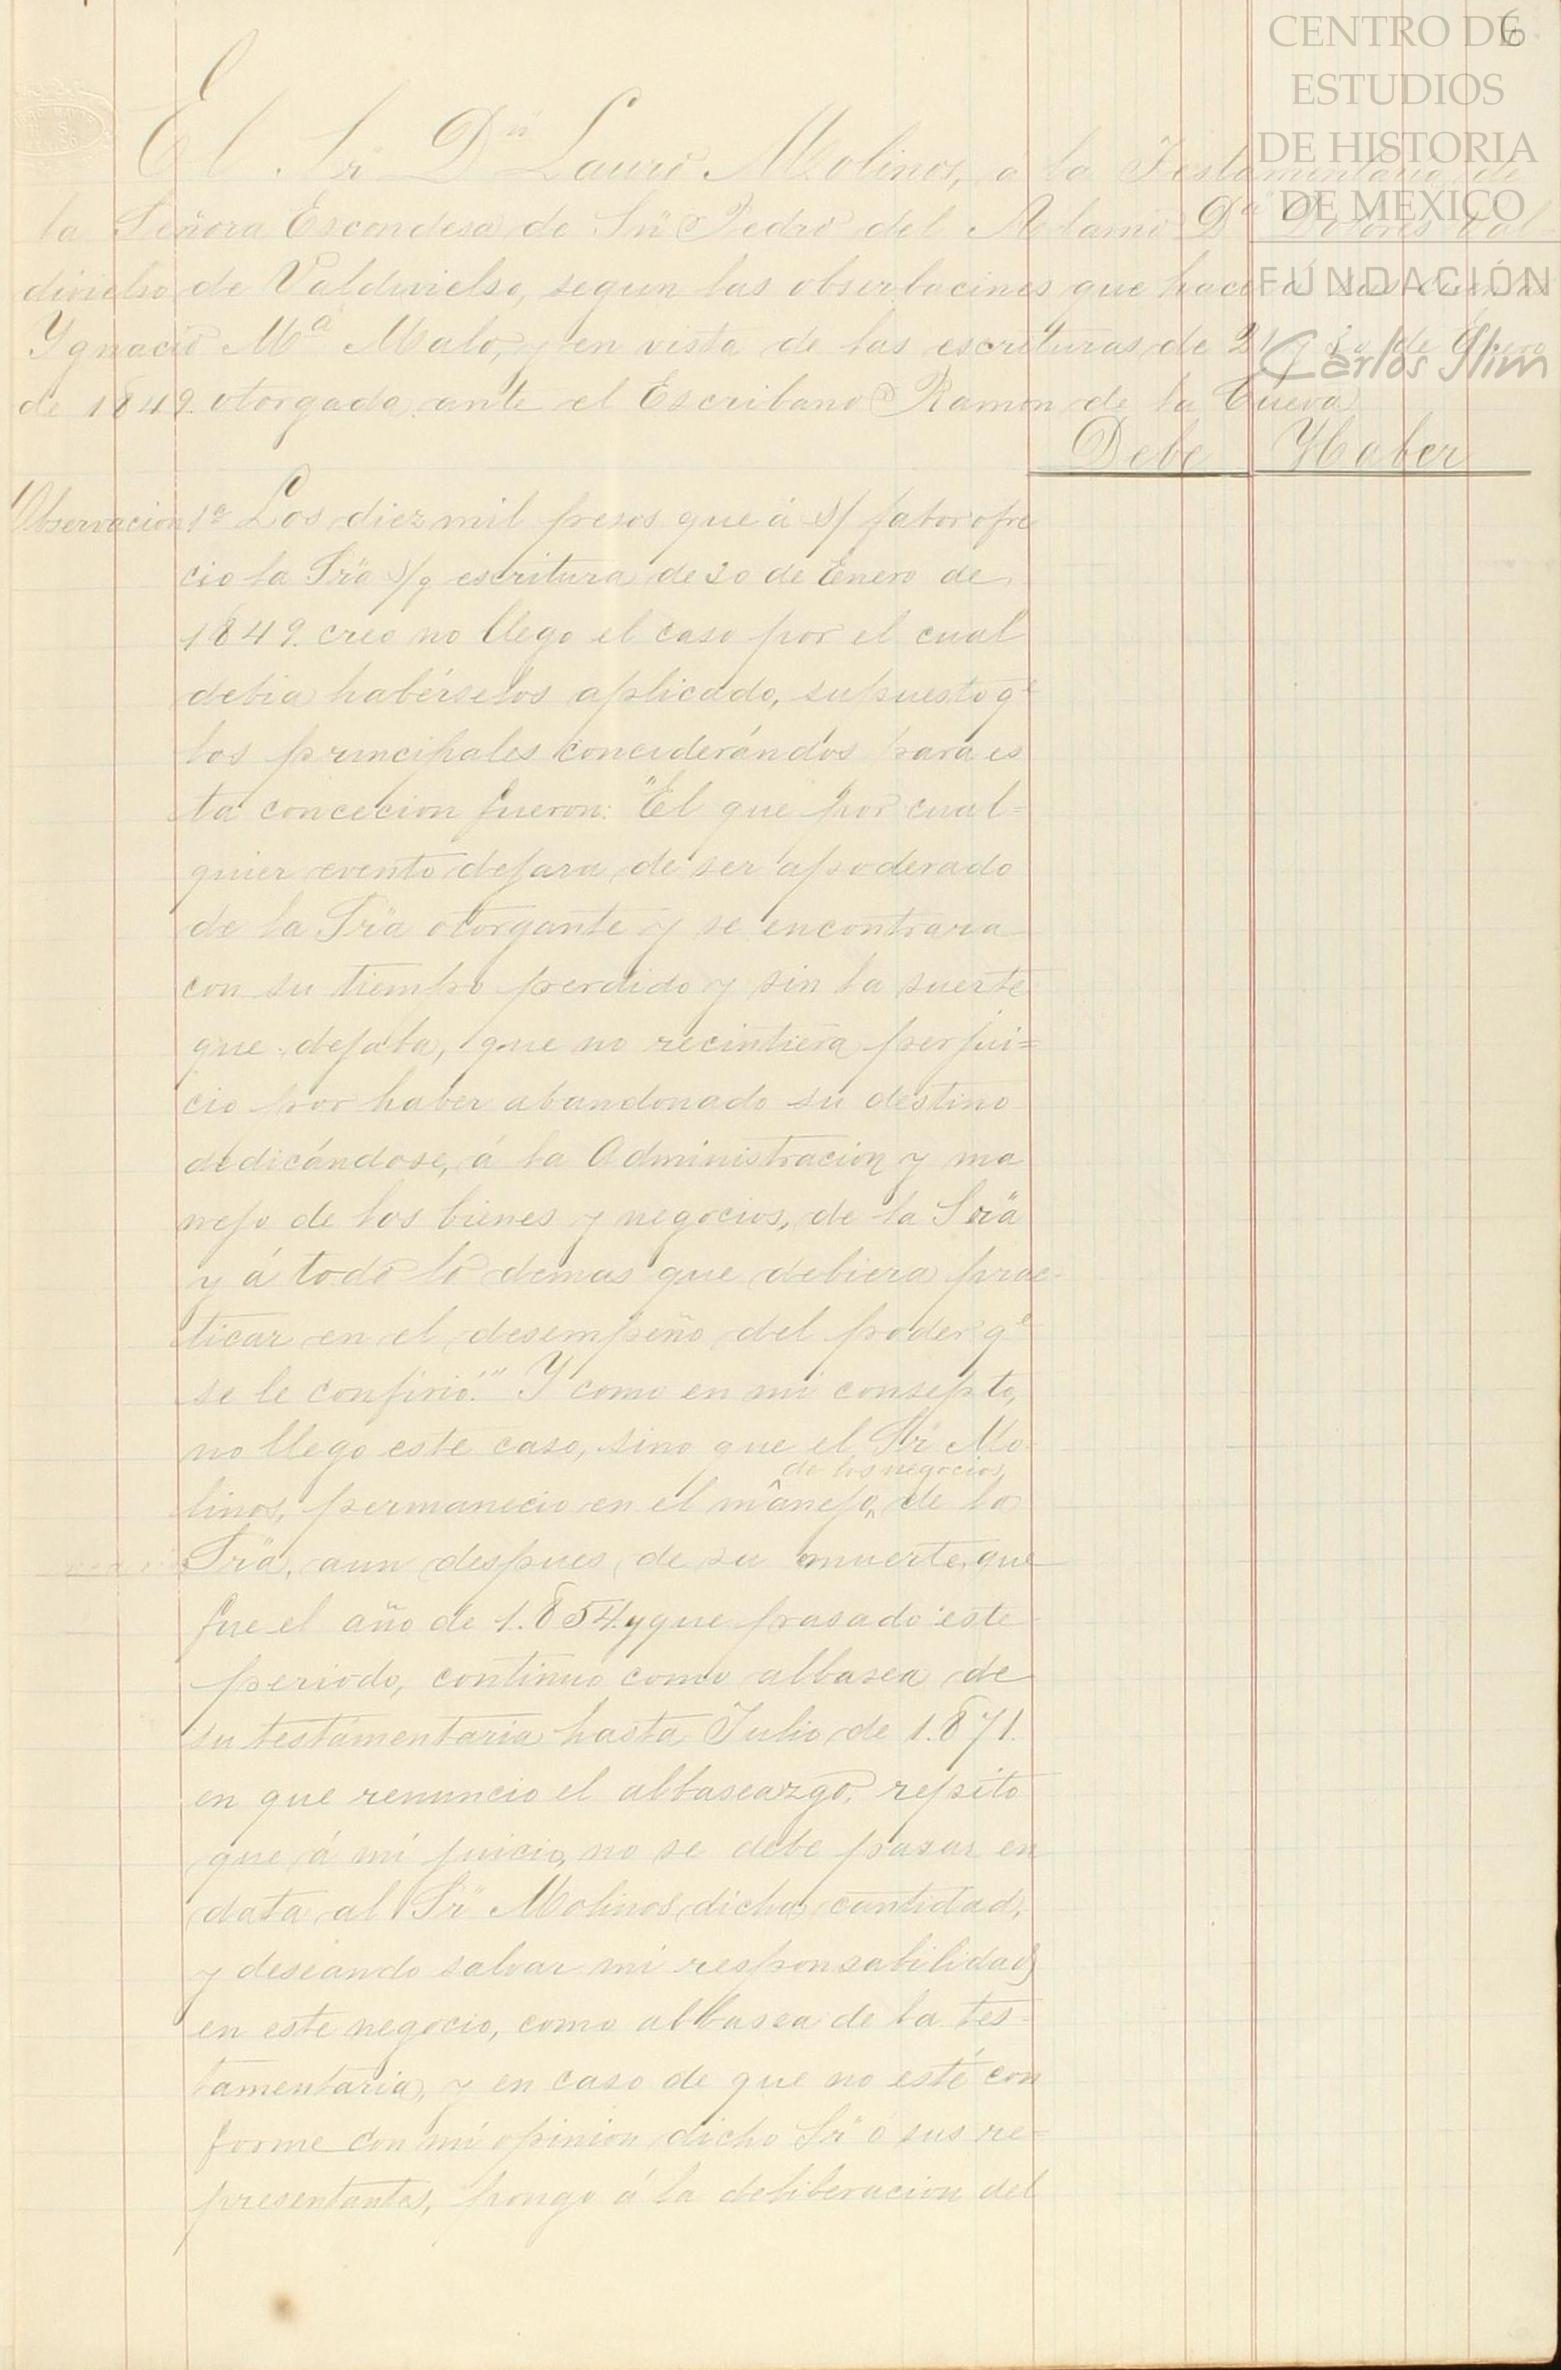 6
CENTRO DE
ESTUDIOS
DE HISTORIA
DE MEXICO
FUNDACIÓN
Carlos Slim
El Sr Dn Lauro Molinos, a la Testamentaria de
la Señora Escondesa de Sn Pedro del Alamo Da Dolores Val
divielso de Valdivielso, segun las obserbacines que hace
Ygnacio Ma Malo, y en vista de las escrituras de 2 de Enero
de 1849. otorgada ante el Escribano Ramon de la Cueva
Debe Haber
Observacion 1a Los diez mil pesos que á s/ fabor ofre
cio la Sra s/g escritura de 20 de Enero de
1849. creo no llego el caso por el cual
debia habérselos aplicado, supuesto qe
los principales conciderándos para es
ta concecion fueron: "El que por cual=
quier evento dejara de ser apoderado
de la Sra otorgante y se encontrara
con su tiempo perdido y sin la suerte
que dejaba, que no recintiera perjui=
cio por haber abandonado su destino
dedicándose, á la Administracion y ma
nejo de los bienes y negocios, de la Sra
y á todo lo demas que debiera prac-
ticar en el desempeño del poder qe
se le confirió." Y como en mi consepto,
no llego este caso, sino que el Sr Mo
de los negocios
linos, permanecio en el manejo, de la
Sra, aun despues de su muerte, que
fue el año de 1.854. y que pasado este
periodo, continuo como albasea de
su testamentaria hasta Julio de 1.871.
en que renuncio el albaseazgo, repito
que á mi juicio, no se debe pasar en
data al Sr Molinos dicha cantidad,
y deseando salvar mi responsabilidad
en este negocio, como albasea de la tes-
tamentaria, y en caso de que no esté con
forme con mi opinion dicho Sr o sus re=
presentantes, pongo á la deliberacion del